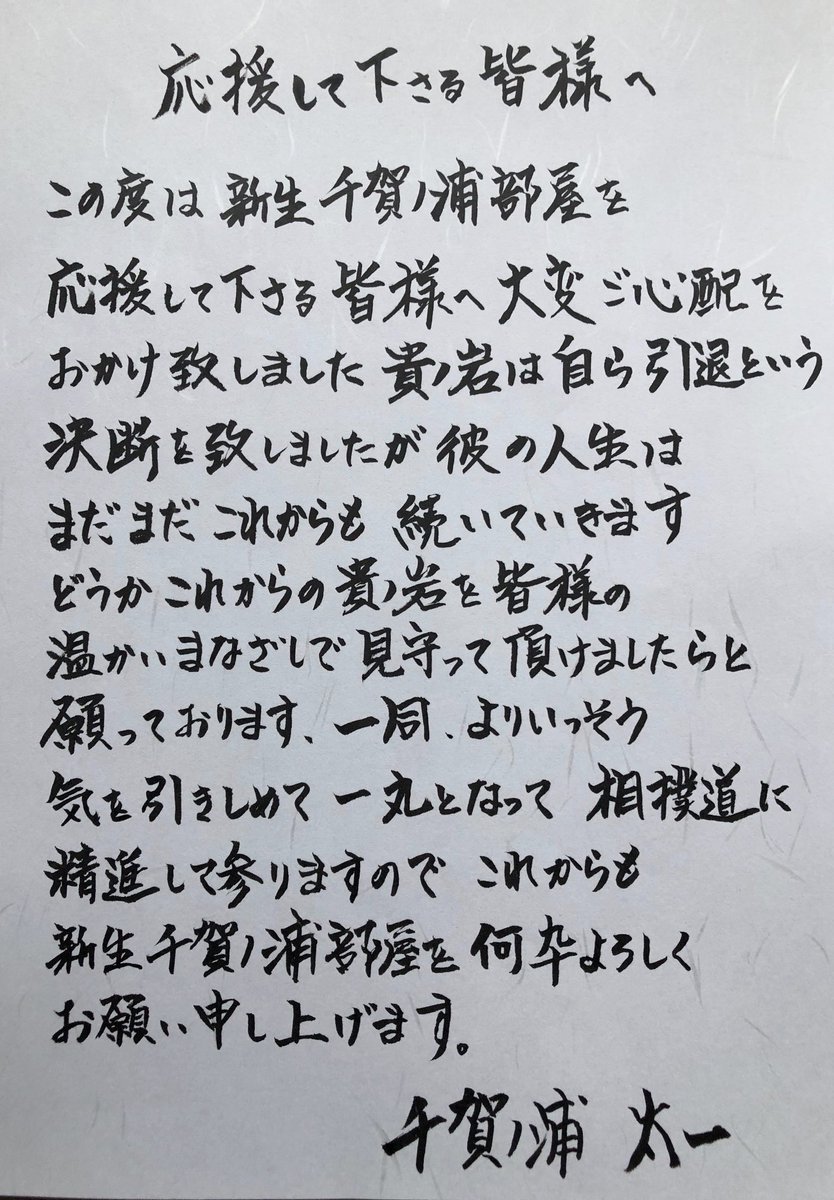 応援して下さる皆様へ
この度は新生千賀ノ浦部屋を
応援して下さる皆様へ大変ご心配を
おかけ致しました貴ノ岩は自ら引退という
決断を致しましたが彼の人生は
まだまだこれからも続いていきます
どうかこれからの貴ノ岩を皆様の
温かいまなざしで見守って頂けましたらと
願っております、一同、よりいっそう
気を引きしめて一丸となって相撲道に
精進して参りますのでこれからも
新生千賀ノ浦部屋を何卒よろしく
お願い申し上げます。
千賀ノ浦 太一